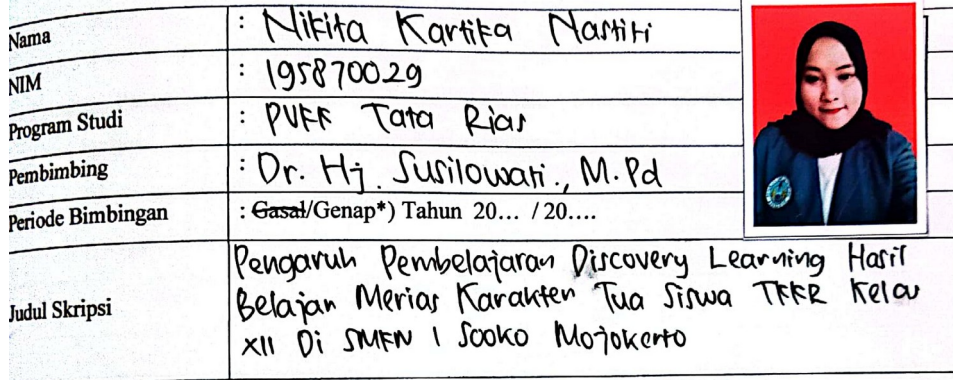 Nama : Nikita Kartika Nastiti
NIM : 195870029
Program Studi : PVKK Tata Rias
Pembimbing : Dr. Hj. Susilowati., M.Pd
Periode Bimbingan : Gasal/Genap*) Tahun 20... / 20....
Judul Skripsi
Pengaruh Pembelajaran Discovery Learning Hasil
Belajar Merias Karakter Tua Siswa TKKR Kelas
XII Di SMKN 1 Sooko Mojokerto